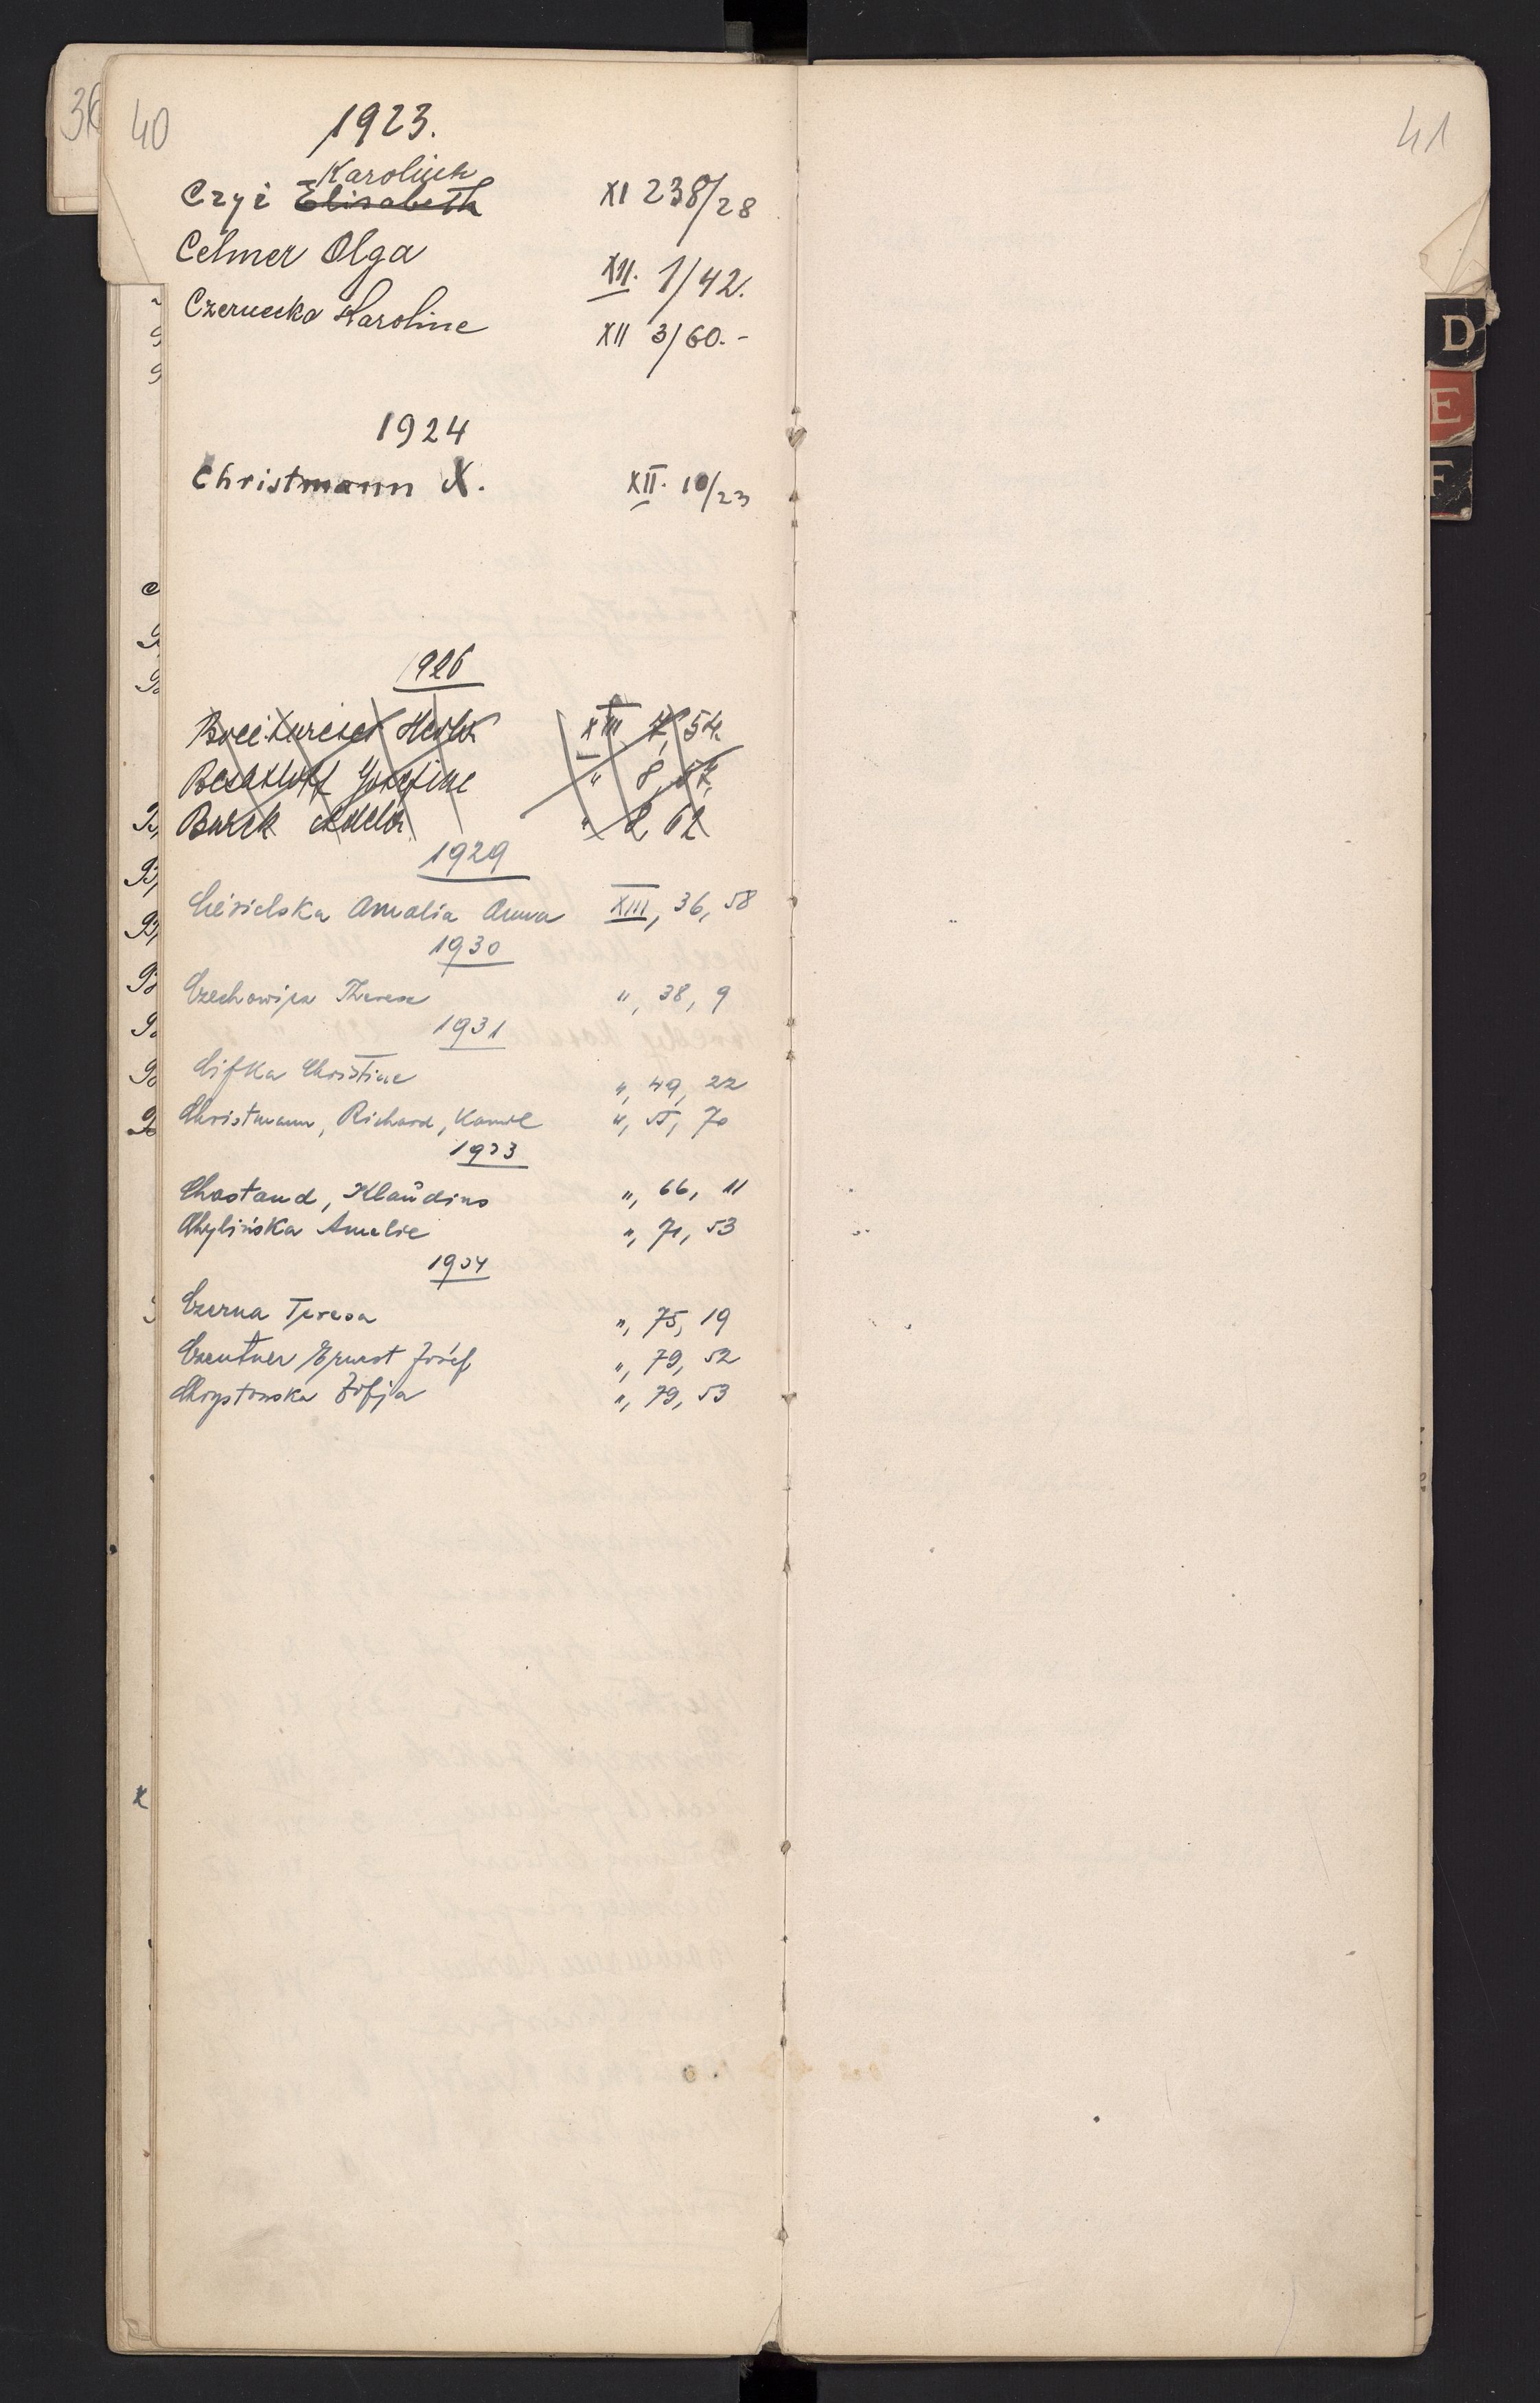 36
40
1923.
Karolich
Czyż Elisabeth XI 238/28
Celmer Olga XII. 1/42.
Czernecka Karoline XII 3/60.-
1924
Christmann X. XII. 10/23
1926
XIII 7, 54.
Josefine " 8, 57,
Burek Adela " 8 62
1929
Ciesielska Amalia Anna XIII, 36, 58
1930
Czechowija Therese ", 38, 9
1931
Cifka Christine ", 49, 22
Christmann, Richard, Kamil ", 55, 70
1933
Chastand, Klaudius ", 66, 11
Chylińska Amelie ", 71, 53
1934
Czerna Teresa ", 75, 19
Czentner Ernest Józef ", 79, 52
Chrystowska Zofja ", 79, 53
41
D
E
F